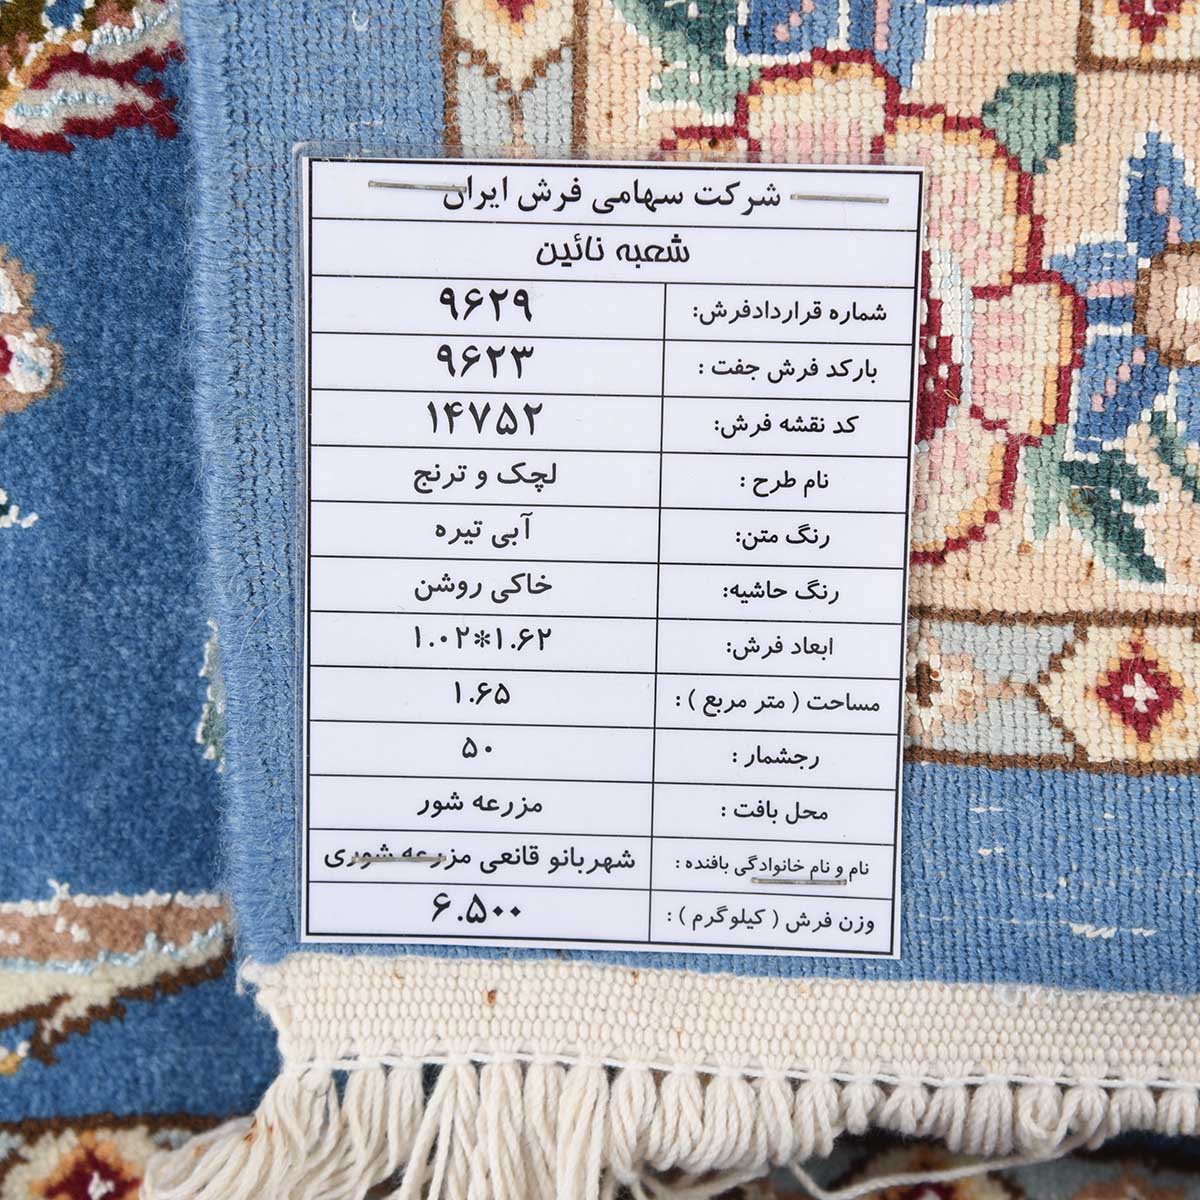 شرکت سهامی فرش ایران
شعبه نائین
شماره قراردادفرش: ۹۶۲۹
بارکد فرش جفت : ۹۶۲۳
کد نقشه فرش: ۱۴۷۵۲
نام طرح : لچک و ترنج
رنگ متن: آبی تیره
رنگ حاشیه: خاکی روشن
ابعاد فرش: ۱.۰۲*۱.۶۲
مساحت ( متر مربع ) : ۱.۶۵
رجشمار : ۵۰
محل بافت : مزرعه شور
نام و نام خانوادگی بافنده : شهربانو قانعی مزرعه شوری
وزن فرش ( کیلوگرم ) : ۶.۵۰۰